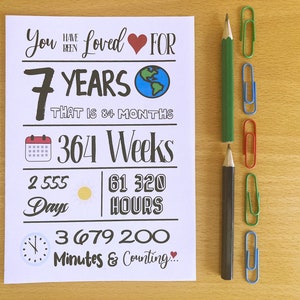 You HAVE BEEN Loved FOR
7 YEARS
THAT IS 84 MONTHS
364 Weeks
2 555 Days
61 320 HOURS
3 679 200
Minutes & Counting...